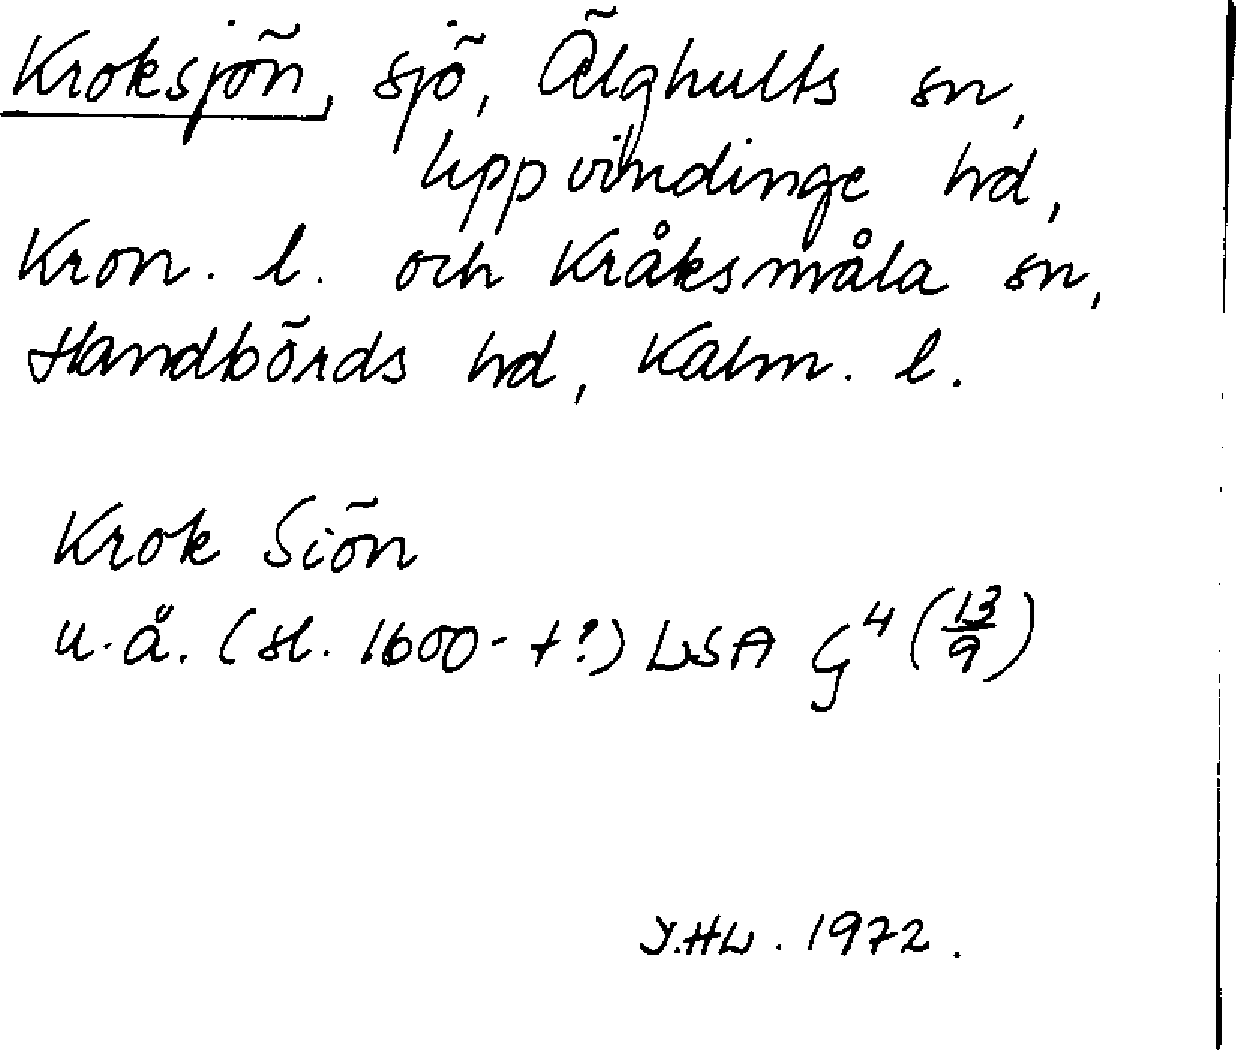 Kroksjön, sjö, Älghults sn,
Uppvidinge hd,
Kron. l. och Kråksmåla sn,
Handbörds hd, Kalm. l.
Krok Siön
u.å. (sl. 1600-t?) LSA G⁴ (13/9)
Y.HW. 1972.